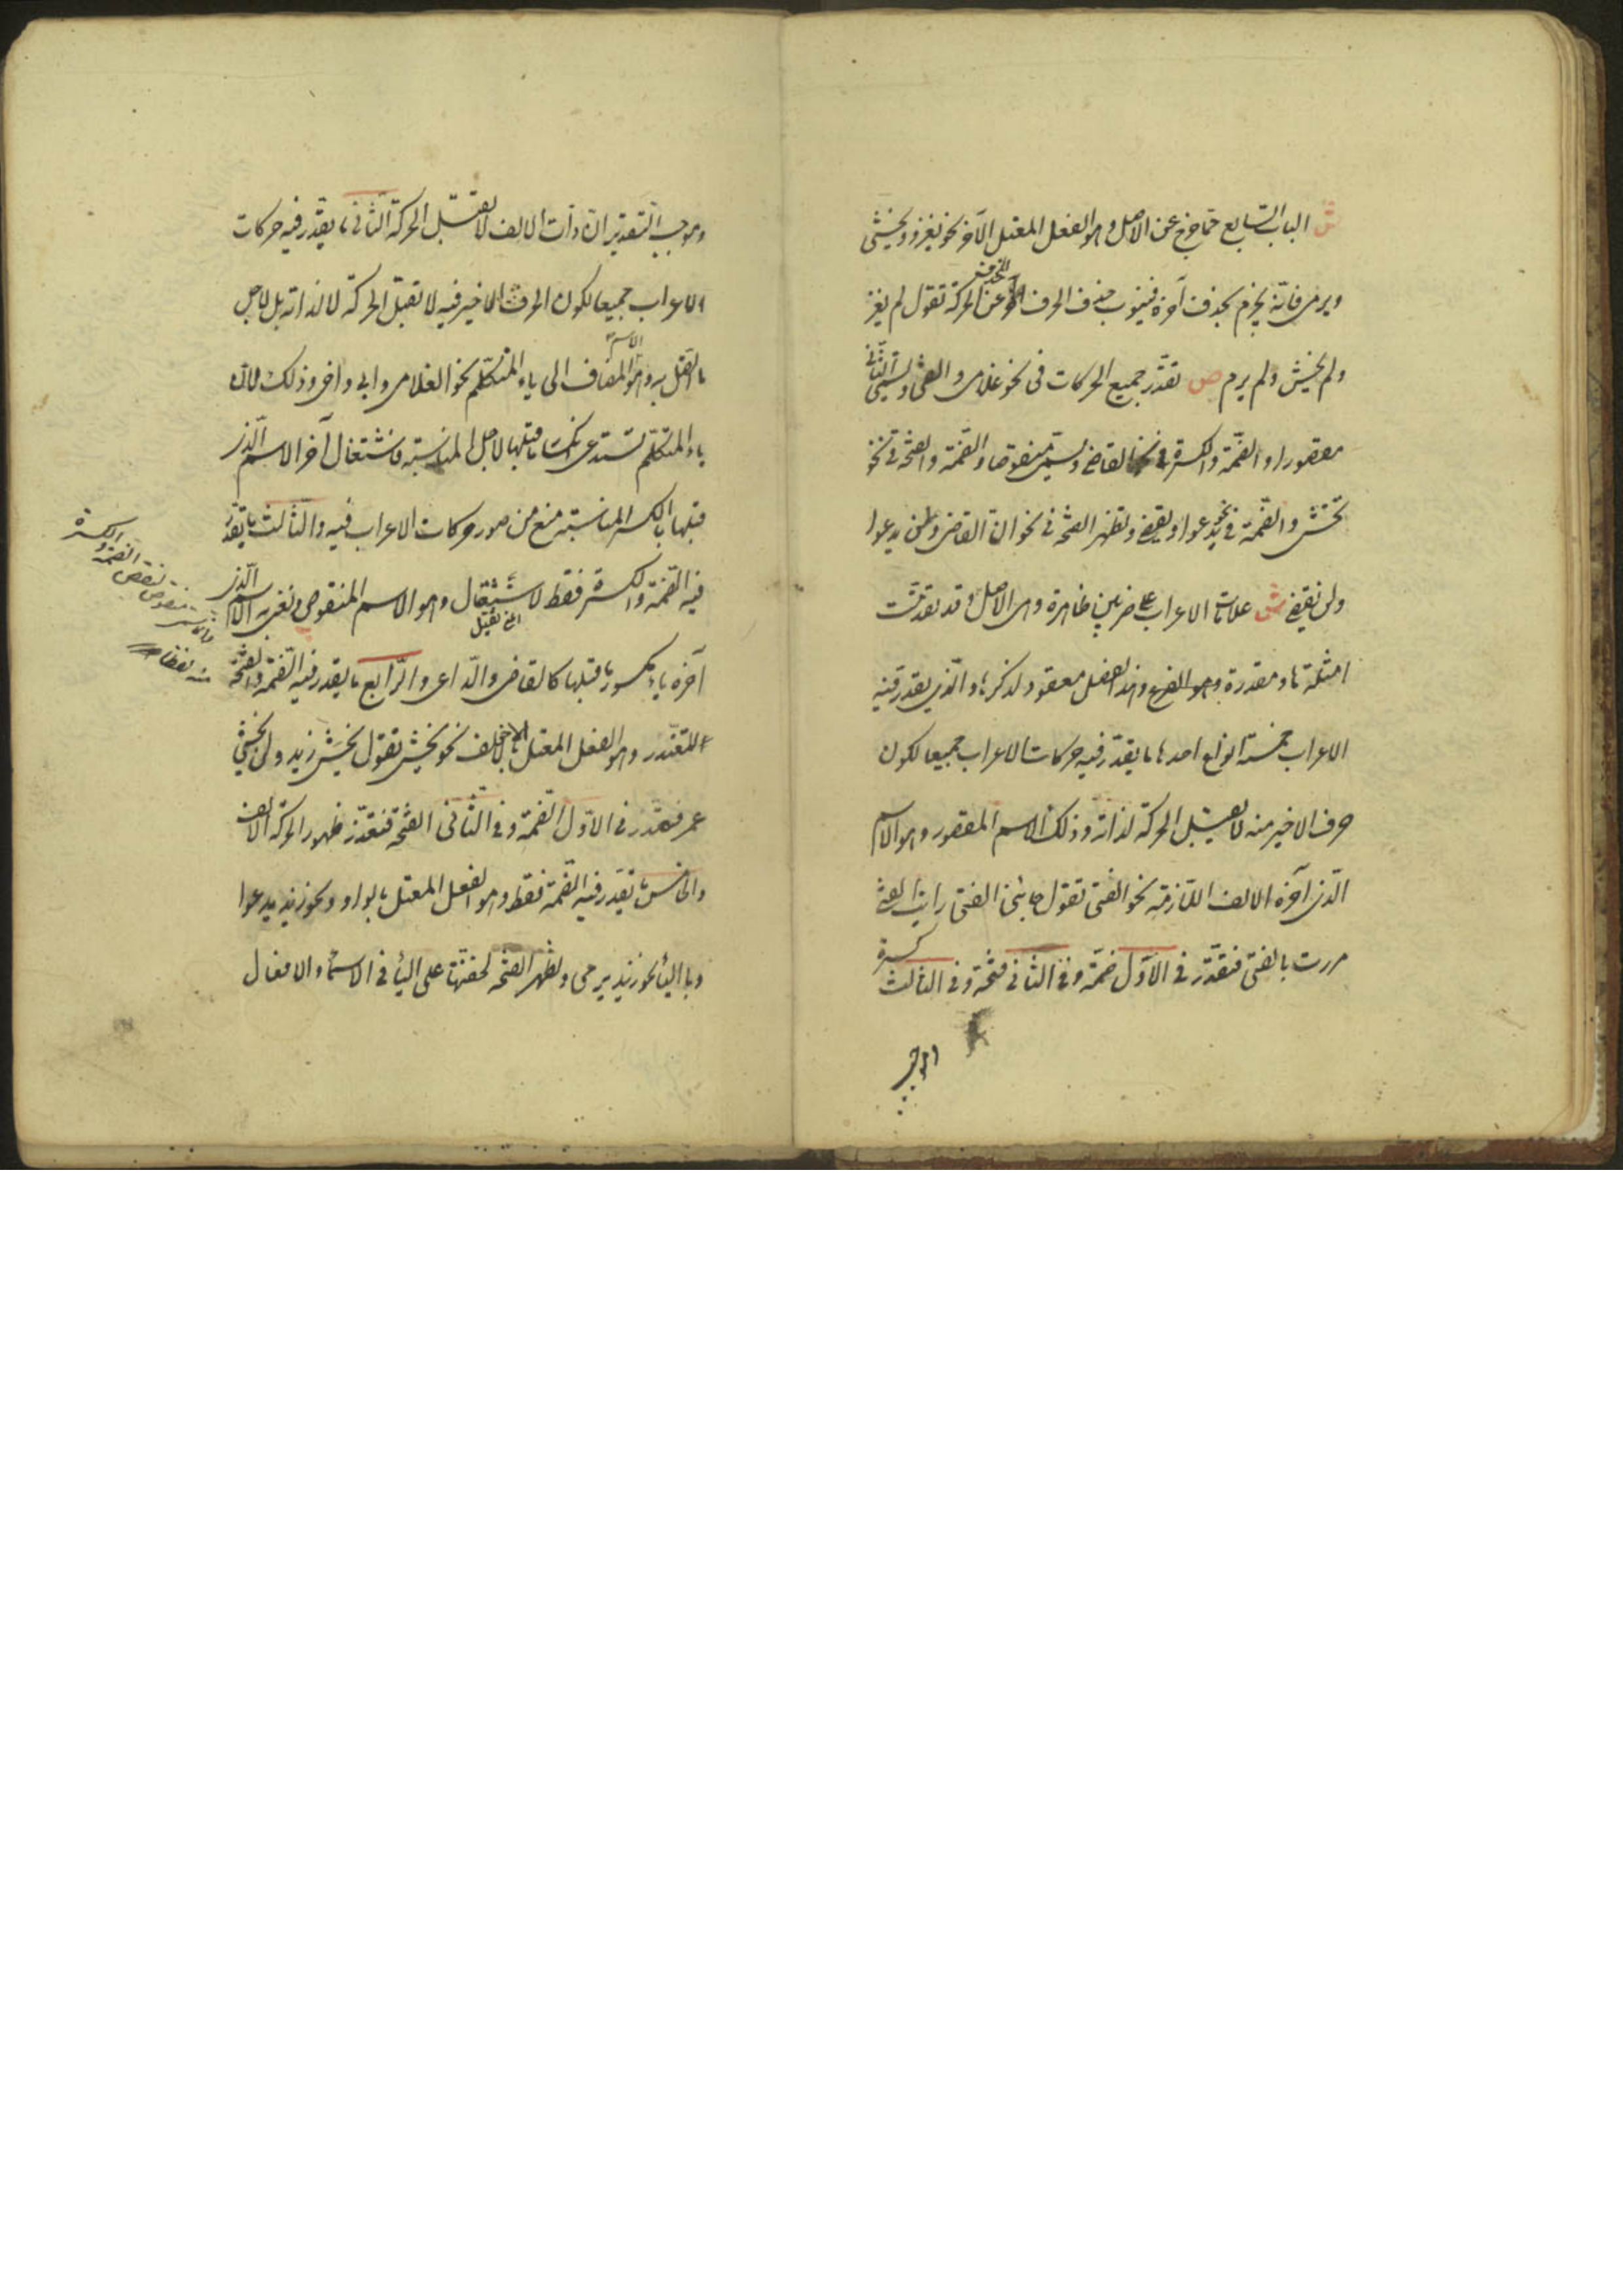 ش الباب السابع مما خرج عن الاصل وهو الفعل المعتل الآخر نحو يغزو ويخشى
ويرمى فانه يجزم بحذف آخره فينوب حذف الحرف الاخر عن الحركة تقول لم يغز
ولم يخش ولم يرم ص تقدّر جميع الحركات فى نحو غلامى والفتى ويسمى الثانى
مقصورا والضمّة والكسرة فى نحو القاضى ويسمّى منقوصا والضّمة والفتحة فى نحو
تخشى والضّمة فى نحو يدعوا ويقضى وتظهر الفتحة فى نحو انّ القاضى ولن يدعوا
ولن يقضى ش علامات الاعراب على ضربين ظاهرة وهى الاصل وقد تقدّمت
امثلتها ومقدرة وهو الفرع وهذا الفصل معقود لذكرها والّذى يقدر فيه
الاعراب خمسة انواع احدها ما يقدّر فيه حركات الاعراب جميعا لكون
حرف الاخير منه لا يقبل الحركة لذاته وذلك الاسم المقصور وهو الاسم
الّذى آخره الالف اللّازمة نحو الفتى تقول جائنى الفتى رايت الفتى
مررت بالفتى فتقدّر فى الاوّل ضمّة وفى الثانى فتحة وفى الثالث كسرة
وموجب التّقدير انّ ذات الالف لا تقبل الحركة الثّانى ما يقدّر فيه حركات
الاعراب جميعا لكون الحرف الاخير فيه لا تقبل الحركة لا لذاته بل لاجل
ما اتّصل به وهو الاسم المضاف الى ياء المتكلّم نحو الغلامى وابى واخى وذلك لانّ
ياء المتكلّم تستدعى انكسار ما قبلها لاجل المناسبة فاشتغال آخر الاسم الّذى
قبلها بالكسر المناسبة منع من ظهور حركات الاعراب فيه والثّالث ما يقدّر
فيه الضّمة والكسرة فقط للاستثقال وهو الاسم المنقوص ونعنى به الاسم الّذى
آخره ياء مكسور ما قبلها كالقاضى والدّاعى والرّابع ما يقدر فيه الضّمة والفتحة
للتعذّر وهو الفعل المعتل بالالف نحو يخشى تقول يخشى زيد ولن يخشى
عمر فتقدر فى الاوّل الضّمة وفى الثّانى الفتحة فتعذّر ظهور الحركة الالف
والخامس ما تقدّر فيه الضّمة فقط وهو الفعل المعتل بالواو ونحو زيد يدعوا
وبا اليا نحو زيد يرمى وتظهر الفتحة لخفّتها على اليا فى الاسماء والافعال